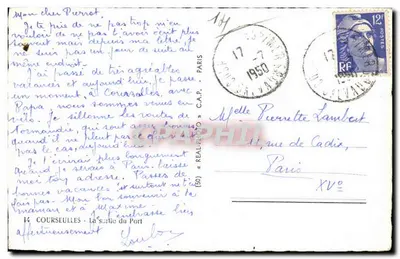 Mon cher Pierrot
Je te prie de ne pas trop m'en
vouloir de ne pas t'avoir écrit plus
souvent mais depuis ma
je ne suis un jour de suite au
même endroit.
J'ai passé de très agréables
vacances et aujourd'hui je passe
un moment, à Courseulles, avec
Papa, nous sommes venus en
vélo. Je sillonne les routes de
Normandie, qui sont très bonnes
quand il ne pleut pas ce
pas le cas,
Je t'écrirai plus longuement
quand je serai à Paris. Laisse
moi ton adresse. Passes de
bonnes vacances et surtout ne t'en
fais pas. Mon bon souvenir à ta
maman et à Maxime.
Je t'embrasse bien
affectueusement
14 COURSEULLES - La sortie du Port
(50) « REAL-PHOTO » C.A.P. - PARIS
17 -7
1950
CALVADOS
12F
RF
POSTES
17 -7
1950
CALVADOS
Melle Pierrette Lambert
11, rue de Cadix,
Paris
XVe